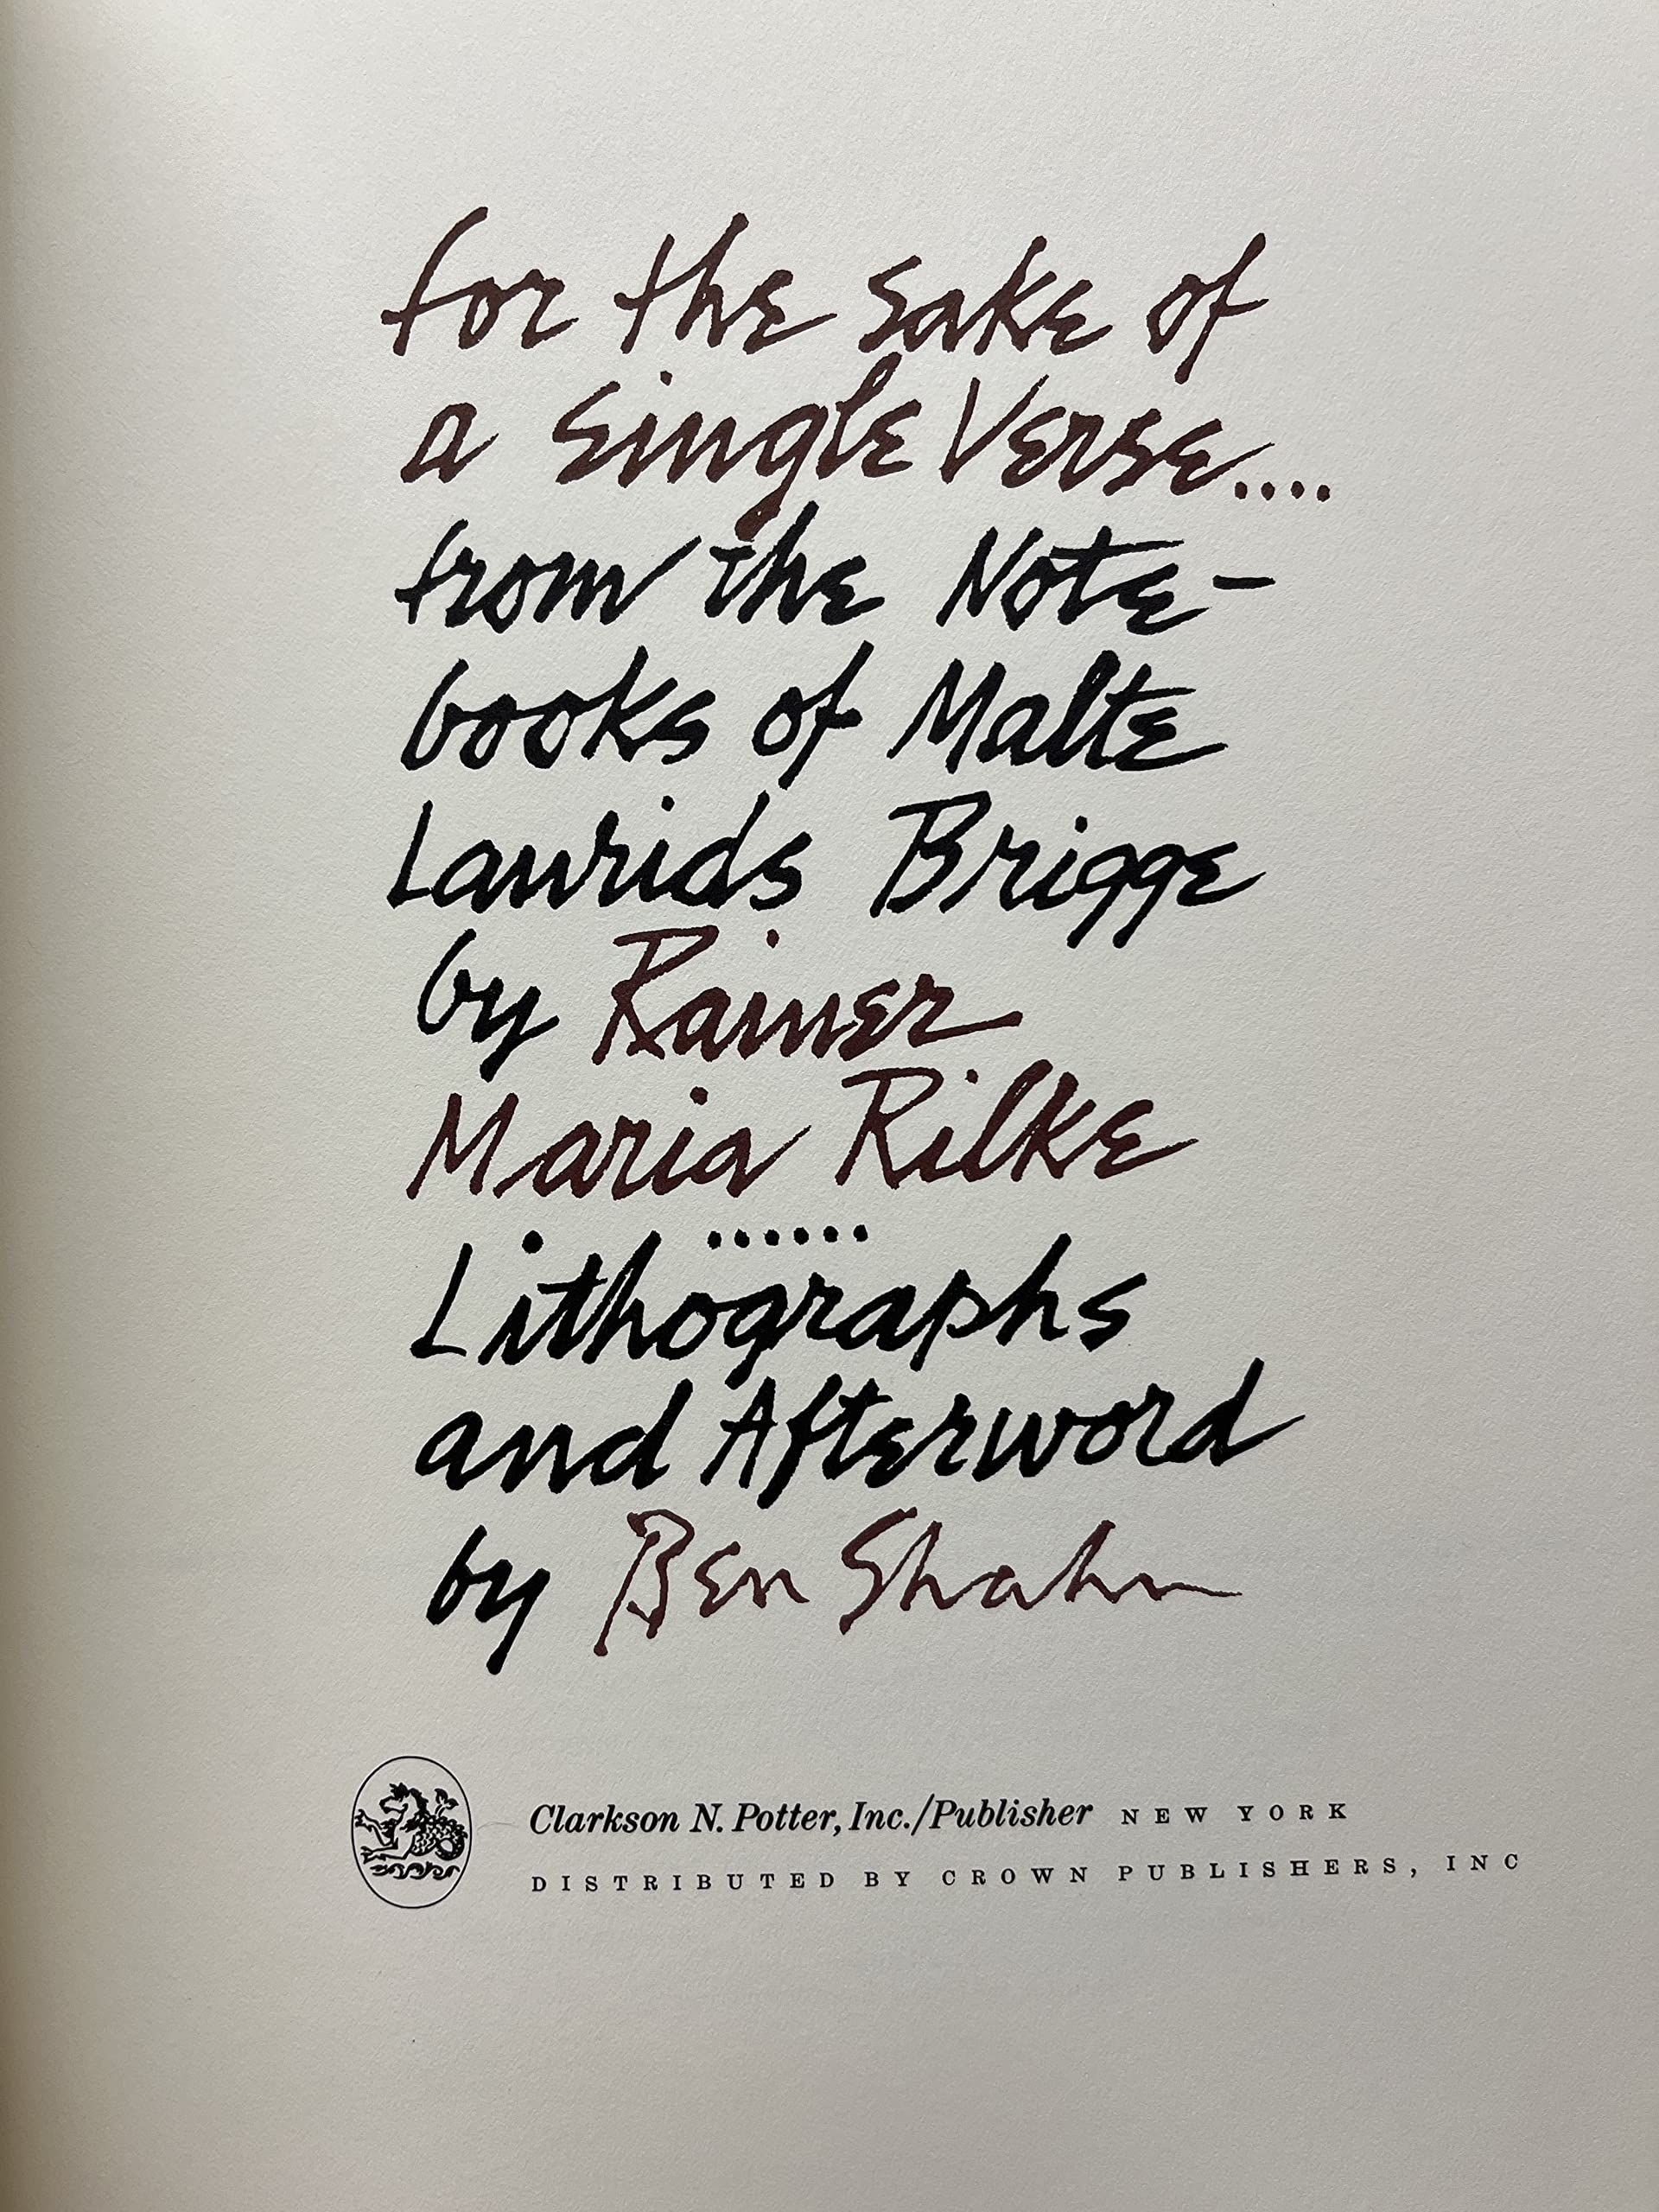 for the sake of
a single Verse....
from the Note-
books of Malte
Laurids Brigge
by Rainer
Maria Rilke
......
Lithographs
and Afterword
by Ben Shahn
Clarkson N. Potter, Inc./Publisher NEW YORK
DISTRIBUTED BY CROWN PUBLISHERS, INC